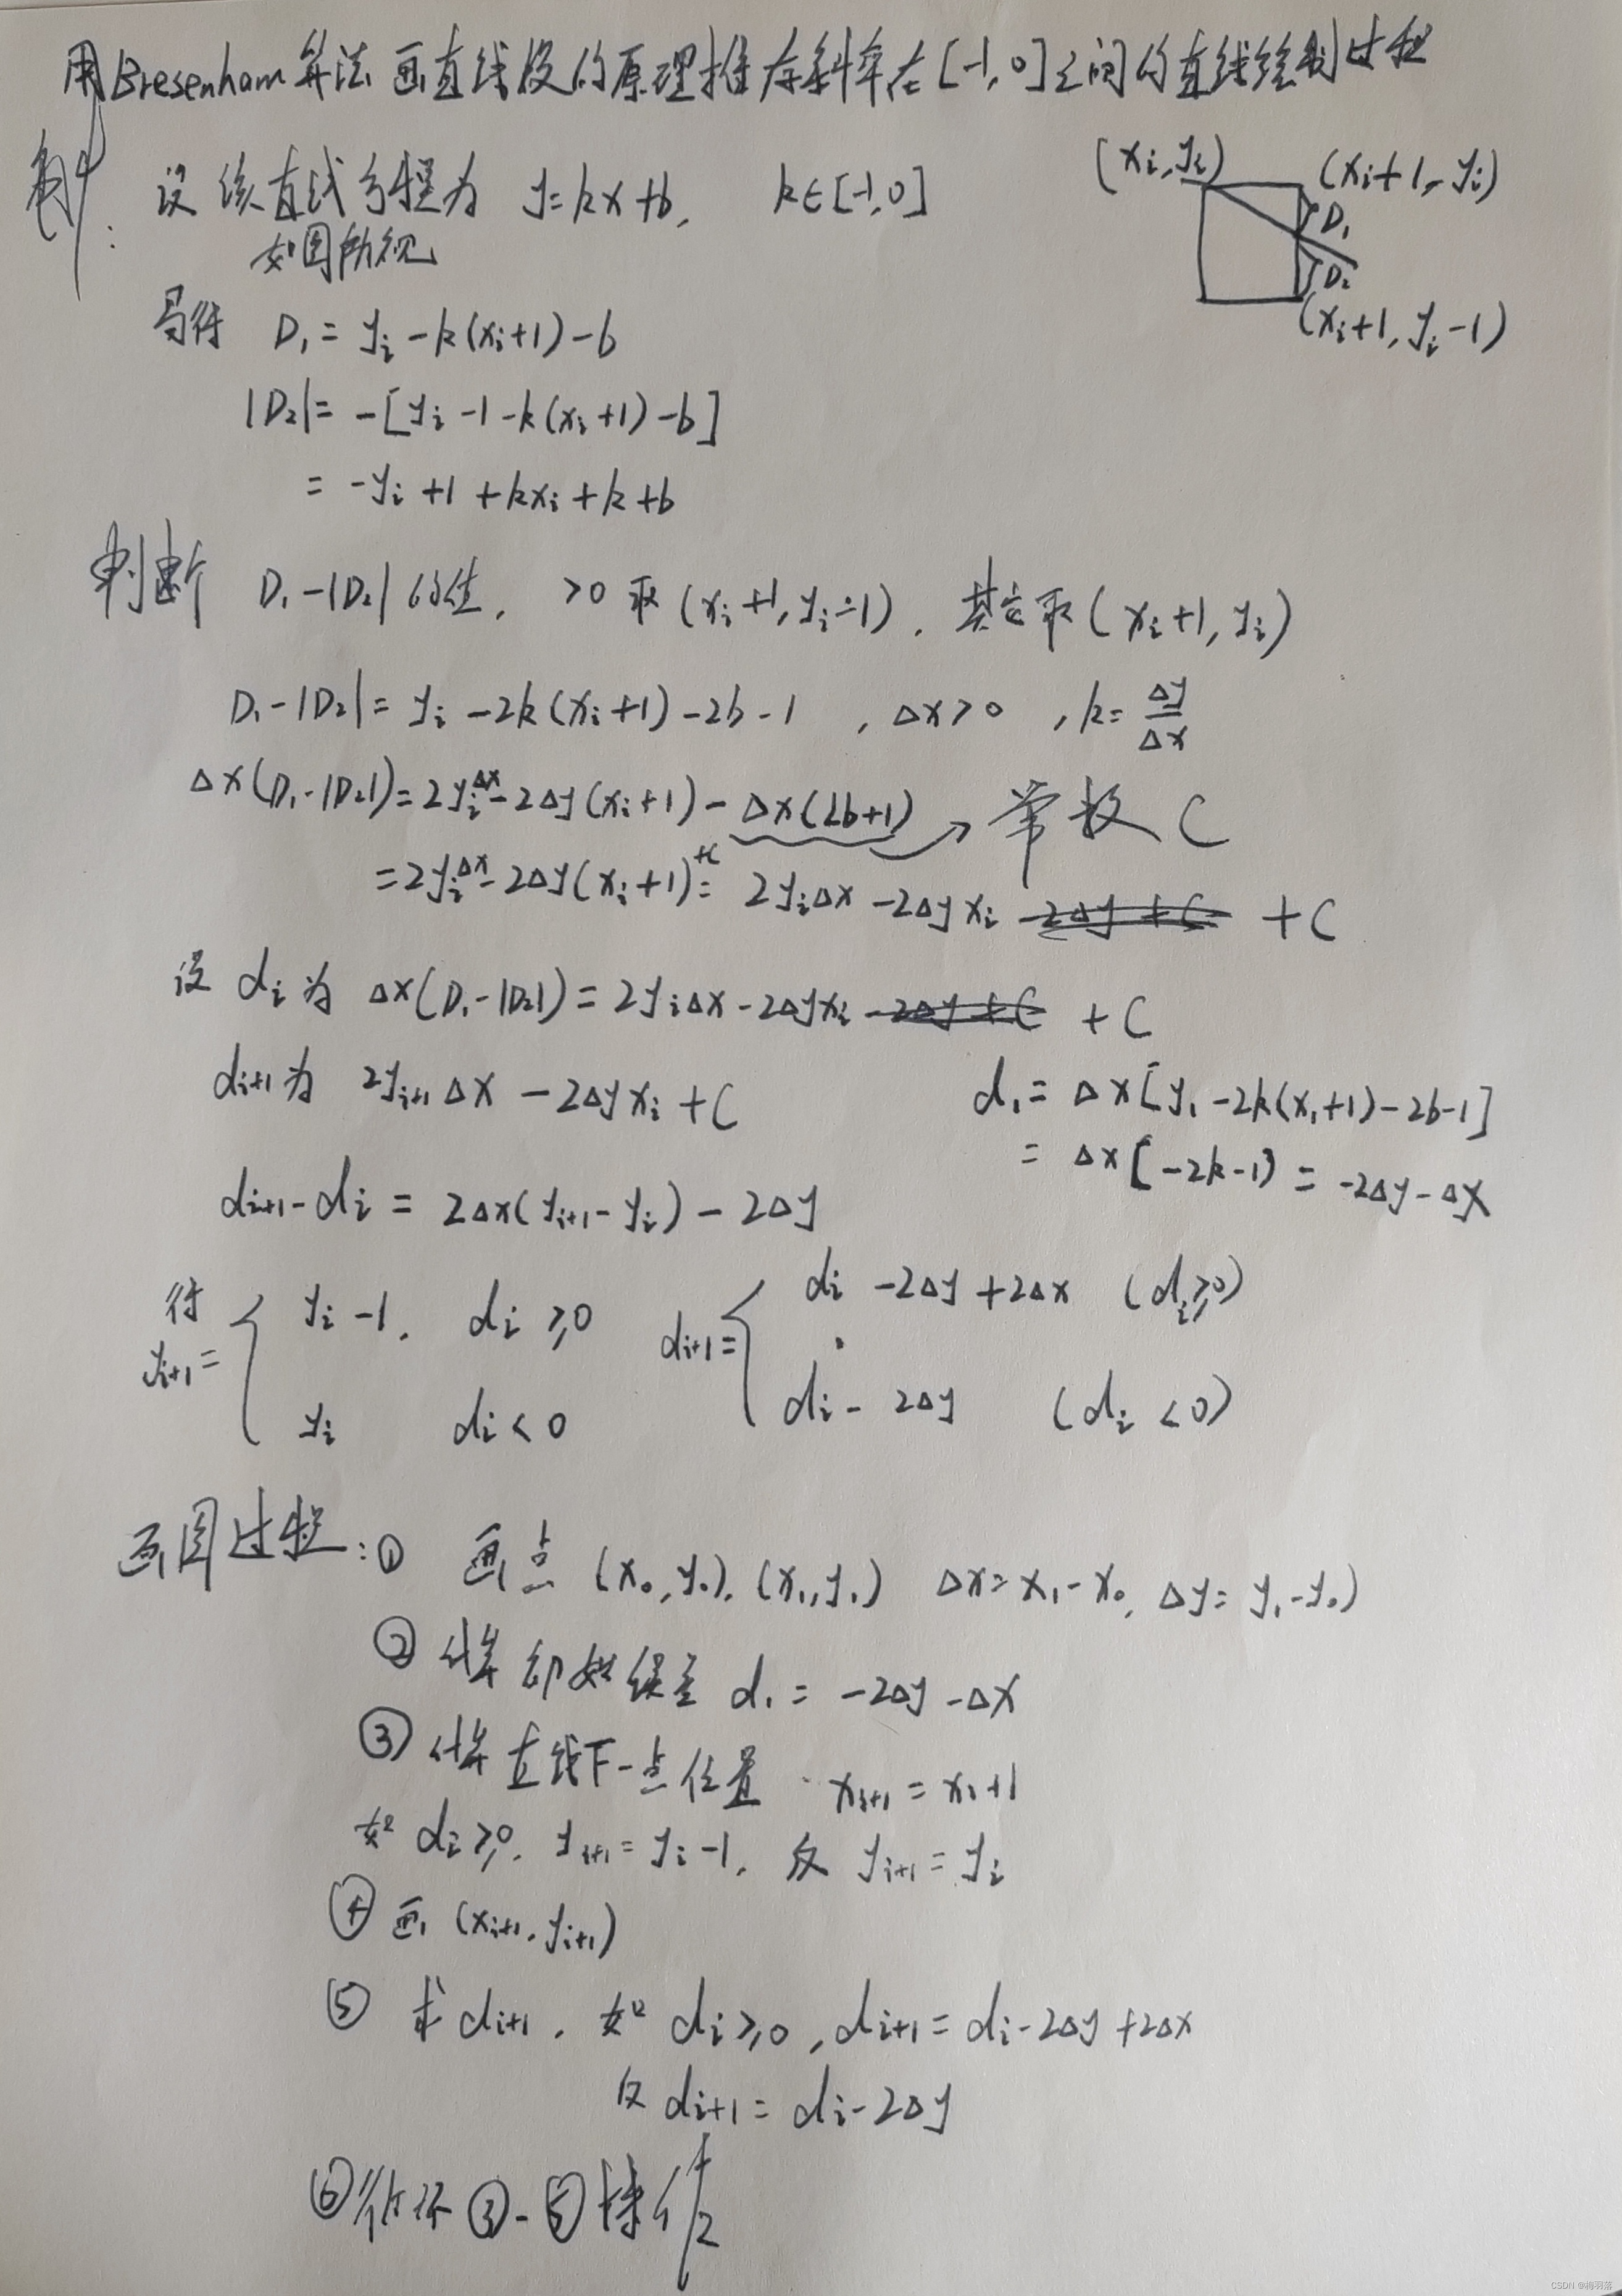 用Bresenham算法画直线段的原理推存斜率在[-1,0]之间的直线绘制过程
解:
设该直线方程为 y=kx+b, k∈[-1,0]
如图所视
(xᵢ,yᵢ) (xᵢ+1,yᵢ)
D₁
D₂
(xᵢ+1,yᵢ-1)
易得 D₁=yᵢ-k(xᵢ+1)-b
|D₂|=-[yᵢ-1-k(xᵢ+1)-b]
=-yᵢ+1+kxᵢ+k+b
判断 D₁-|D₂|的值, >0 取(xᵢ+1,yᵢ-1), 其它取(xᵢ+1,yᵢ)
D₁-|D₂|=yᵢ-2k(xᵢ+1)-2b-1 , Δx>0 , k=Δy/Δx
Δx(D₁-|D₂|)=2yᵢΔx-2Δy(xᵢ+1)-Δx(2b+1) → 常数C
=2yᵢΔx-2Δy(xᵢ+1)+c=2yᵢΔx-2Δyxᵢ-2Δy+C +C
设dᵢ为 Δx(D₁-|D₂|)=2yᵢΔx-2Δyxᵢ-2Δy+C +C
dᵢ₊₁为 2yᵢ₊₁Δx-2Δyxᵢ+C
d₁=Δx[y₁-2k(x₁+1)-2b-1]
=Δx[-2k-1)=-2Δy-Δx
dᵢ₊₁-dᵢ=2Δx(yᵢ₊₁-yᵢ)-2Δy
得
yᵢ₊₁={ yᵢ-1, dᵢ≥0
yᵢ dᵢ<0
dᵢ₊₁={ dᵢ-2Δy+2Δx (dᵢ≥0)
dᵢ-2Δy (dᵢ<0)
画图过程:① 画点(x₀,y₀),(x₁,y₁) Δx=x₁-x₀,Δy=y₁-y₀)
② 计算初始误差 d₁=-2Δy-Δx
③ 计算直线下一点位置 xᵢ₊₁=xᵢ+1
如dᵢ≥0, yᵢ₊₁=yᵢ-1, 反yᵢ₊₁=yᵢ
④ 画(xᵢ₊₁,yᵢ₊₁)
⑤ 求dᵢ₊₁, 如dᵢ≥0,dᵢ₊₁=dᵢ-2Δy+2Δx
反dᵢ₊₁=dᵢ-2Δy
⑥循环③-⑤操作
CSDN @梅羽落